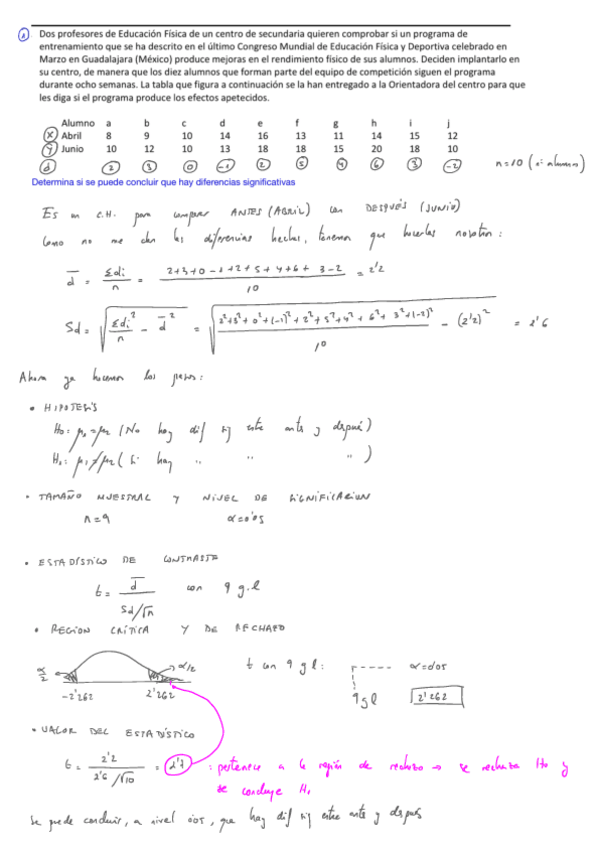 Dos profesores de Educación Física de un centro de secundaria quieren comprobar si un programa de
entrenamiento que se ha descrito en el último Congreso Mundial de Educación Física y Deportiva celebrado en
Marzo en Guadalajara (México) produce mejoras en el rendimiento físico de sus alumnos. Deciden implantarlo en
su centro, de manera que los diez alumnos que forman parte del equipo de competición siguen el programa
durante ocho semanas. La tabla que figura a continuación se la han entregado a la Orientadora del centro para que
les diga si el programa produce los efectos apetecidos.
Alumno a b c d e f g h i j
X Abril 8 9 10 14 16 13 11 14 15 12
Y Junio 10 12 10 13 18 18 15 20 18 10
d 2 3 0 -1 2 5 4 6 3 -2 n=10 ( alumnos)
Determina si se puede concluir que hay diferencias significativas
Es un C.H. para comparar ANTES (ABRIL) con DESPUÉS (JUNIO)
Como no me dan las diferencias hechas, tenemos que hacerlas nosotros:
d̄ = Σdi / n = 2+3+0-1+2+5+4+6+3-2 / 10 = 2'2
Sd = √(Σdi² / n - d̄²) = √(2²+3²+0²+(-1)²+2²+5²+4²+6²+3²+(-2)² / 10 - (2'2)²) = 2'6
Ahora ya hacemos los pasos:
• HIPOTESIS
H₀: μ₁=μ₂ (No hay dif sig entre antes y después)
H₁: μ₁≠μ₂ (Si hay " " " )
• TAMAÑO MUESTRAL Y NIVEL DE SIGNIFICACION
n=9 α=0'05
• ESTADÍSTICO DE CONTRASTE
t = d̄ / Sd/√n con 9 g.l
• REGION CRÍTICA Y DE RECHAZO
α/2 α/2 t con 9 gl: α=0'05
-2'262 2'262 9gl 2'262
• VALOR DEL ESTADÍSTICO
t = 2'2 / 2'6/√10 = 2'7 : pertenece a la región de rechazo → se rechaza H₀ y
se concluye H₁
Se puede concluir, a nivel 0'05, que hay dif sig entre antes y después